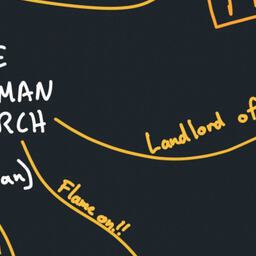 E
MAN
RCH
an)
Landlord of
Flame on!!